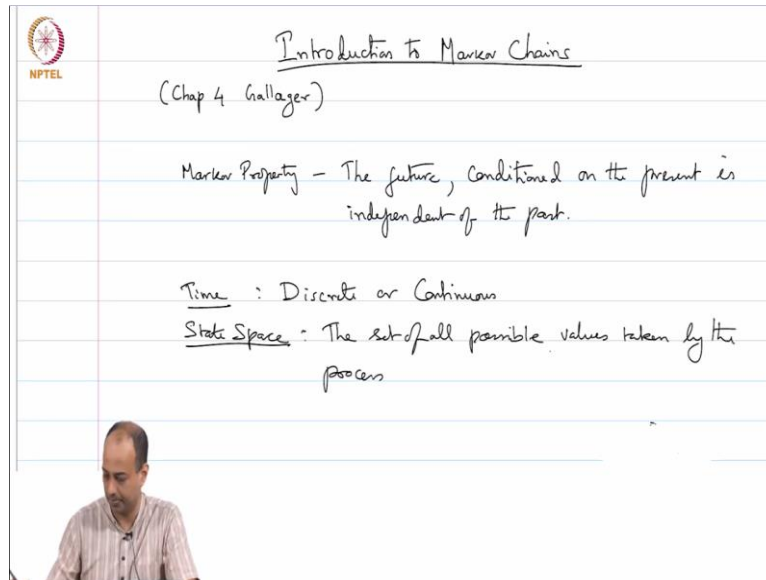 NPTEL
Introduction to Markov Chains
(Chap 4 Gallager)
Markov Property - The future, conditioned on the present is
independent of the past.
Time : Discrete or Continuous
State Space : The set of all possible values taken by the
process